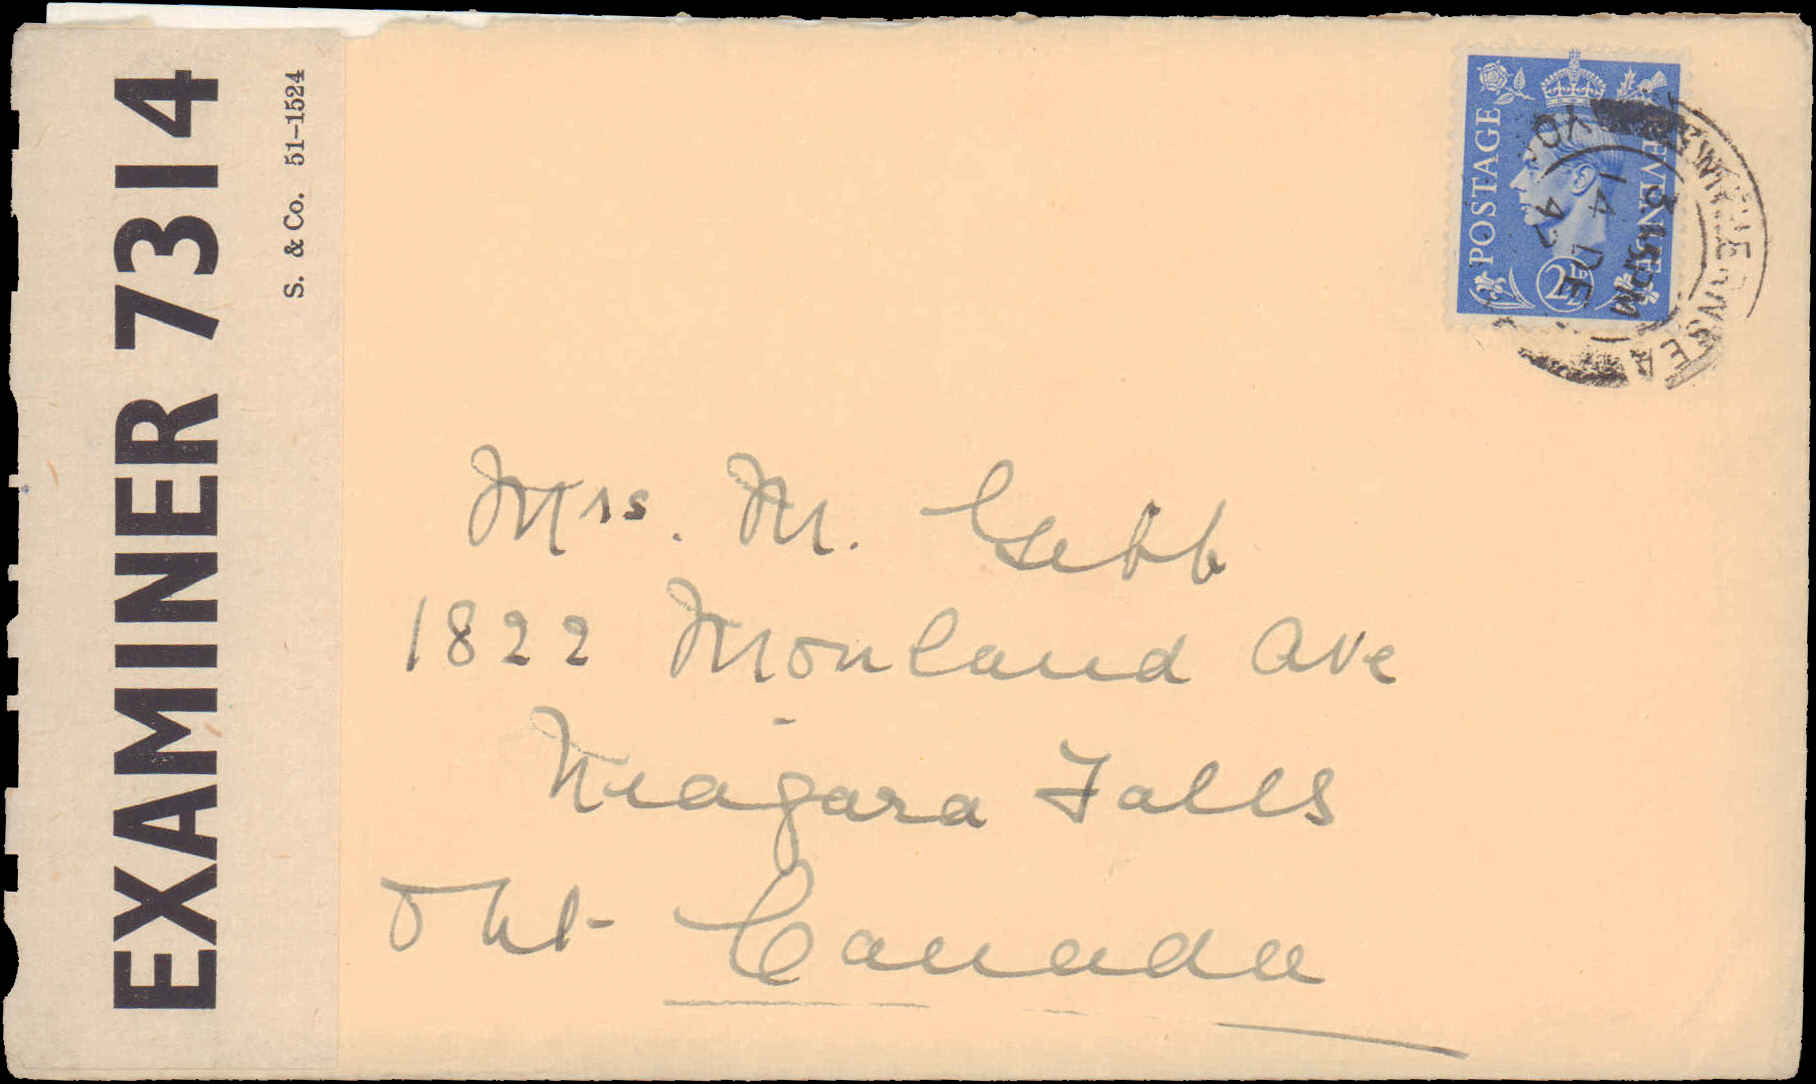 EXAMINER 7314
S. & Co. 51-1524
POSTAGE
REVENUE
2½D
3.15PM
14 DE
SWANSEA
Mrs. M. Gebb
1822 Monland Ave
Niagara Falls
Ont- Canada